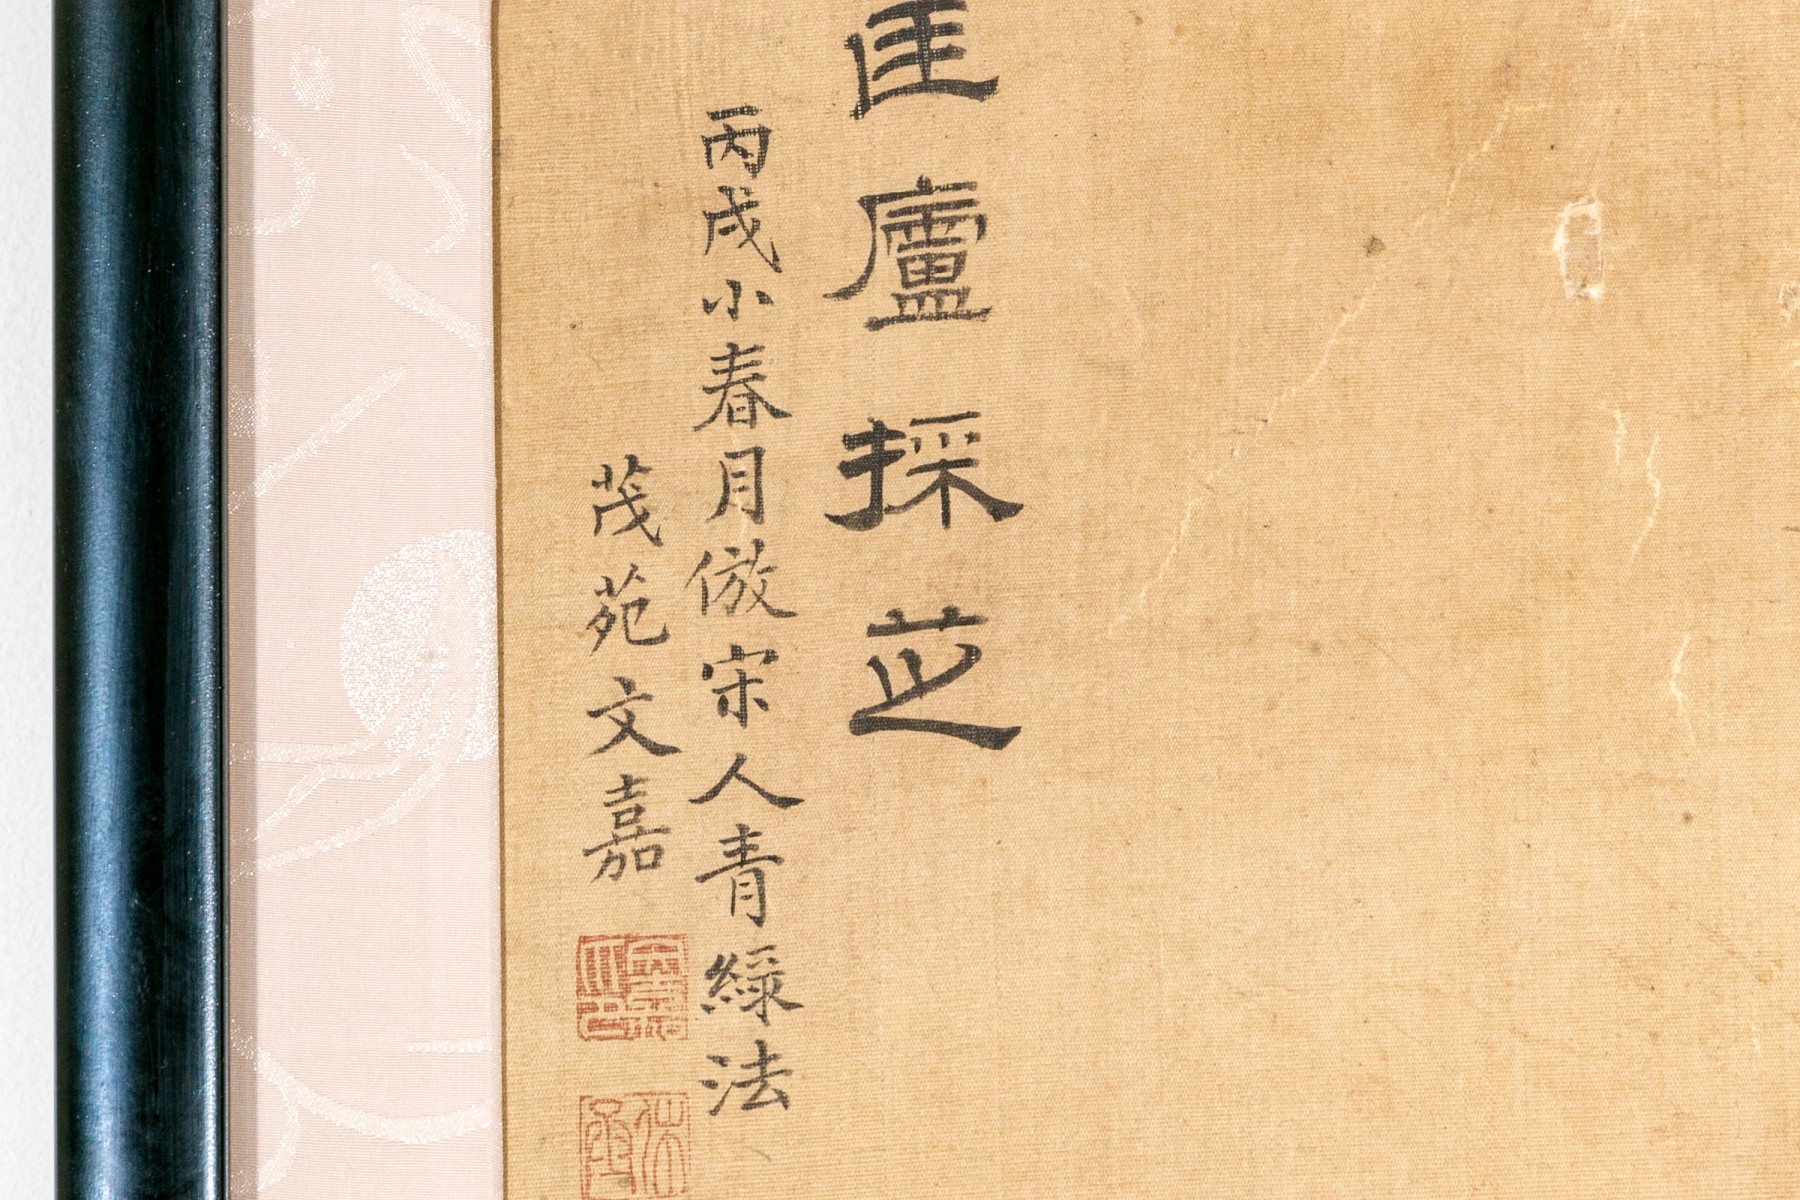 匡廬採芝
丙戌小春月倣宋人青綠法
茂苑文嘉